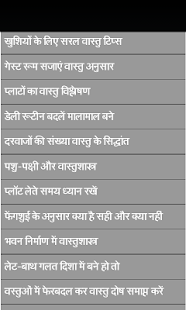 खुशियों के लिए सरल वास्तु टिप्स
गेस्ट रूम सजाएं वास्तु अनुसार
प्लाटों का वास्तु विश्लेषण
डेली रूटीन बदलें मालामाल बने
दरवाजों की संख्या वास्तु के सिद्धांत
पशु-पक्षी और वास्तुशास्त्र
प्लॉट लेते समय ध्यान रखें
फेंगशुई के अनुसार क्या है सही और क्या नही
भवन निर्माण में वास्तुशास्त्र
लेट-बाथ गलत दिशा में बने हो तो
वस्तुओं में फेरबदल कर वास्तु दोष समाप्त करें